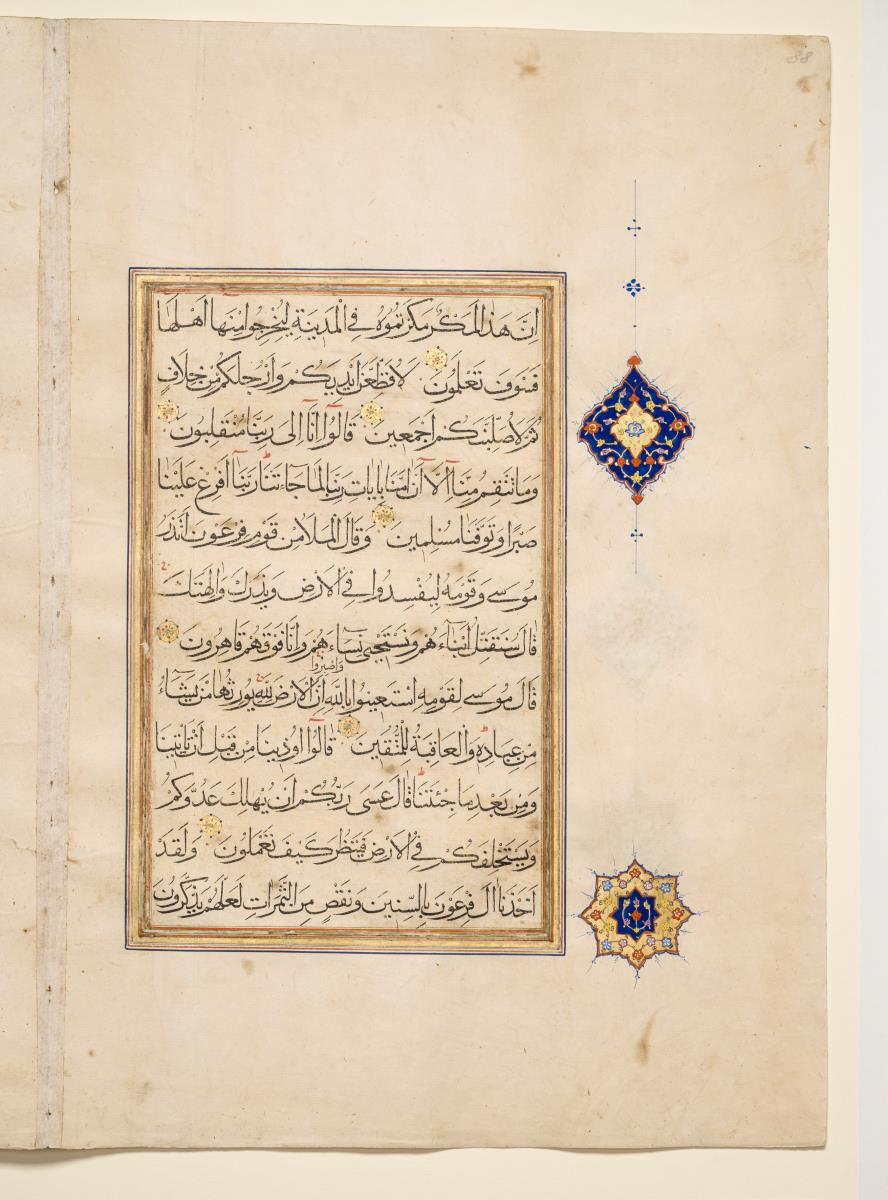 88
اِنَّ هٰذَا لَمَكْرٌ مَكَرْتُمُوهُ فِي الْمَدِينَةِ لِتُخْرِجُوا مِنْهَا اَهْلَهَا
فَسَوْفَ تَعْلَمُونَ لَاُقَطِّعَنَّ اَيْدِيَكُمْ وَاَرْجُلَكُمْ مِنْ خِلَافٍ
ثُمَّ لَاُصَلِّبَنَّكُمْ اَجْمَعِينَ قَالُوا اِنَّا اِلَى رَبِّنَا مُنْقَلِبُونَ
وَمَا تَنْقِمُ مِنَّا اِلَّا اَنْ اٰمَنَّا بِاٰيَاتِ رَبِّنَا لَمَّا جَاءَتْنَا رَبَّنَا اَفْرِغْ عَلَيْنَا
صَبْرًا وَتَوَفَّنَا مُسْلِمِينَ وَقَالَ الْمَلَأُ مِنْ قَوْمِ فِرْعَوْنَ اَتَذَرُ
مُوسَى وَقَوْمَهُ لِيُفْسِدُوا فِي الْاَرْضِ وَيَذَرَكَ وَاٰلِهَتَكَ
قَالَ سَنُقَتِّلُ اَبْنَاءَهُمْ وَنَسْتَحْيِي نِسَاءَهُمْ وَاِنَّا فَوْقَهُمْ قَاهِرُونَ
قَالَ مُوسَى لِقَوْمِهِ اسْتَعِينُوا بِاللّٰهِ وَاصْبِرُوا اِنَّ الْاَرْضَ لِلّٰهِ يُورِثُهَا مَنْ يَشَاءُ
مِنْ عِبَادِهِ وَالْعَاقِبَةُ لِلْمُتَّقِينَ قَالُوا اُوذِينَا مِنْ قَبْلِ اَنْ تَاْتِيَنَا
وَمِنْ بَعْدِ مَا جِئْتَنَا قَالَ عَسَى رَبُّكُمْ اَنْ يُهْلِكَ عَدُوَّكُمْ
وَيَسْتَخْلِفَكُمْ فِي الْاَرْضِ فَيَنْظُرَ كَيْفَ تَعْمَلُونَ وَلَقَدْ
اَخَذْنَا اٰلَ فِرْعَوْنَ بِالسِّنِينَ وَنَقْصٍ مِنَ الثَّمَرَاتِ لَعَلَّهُمْ يَذَّكَّرُونَ